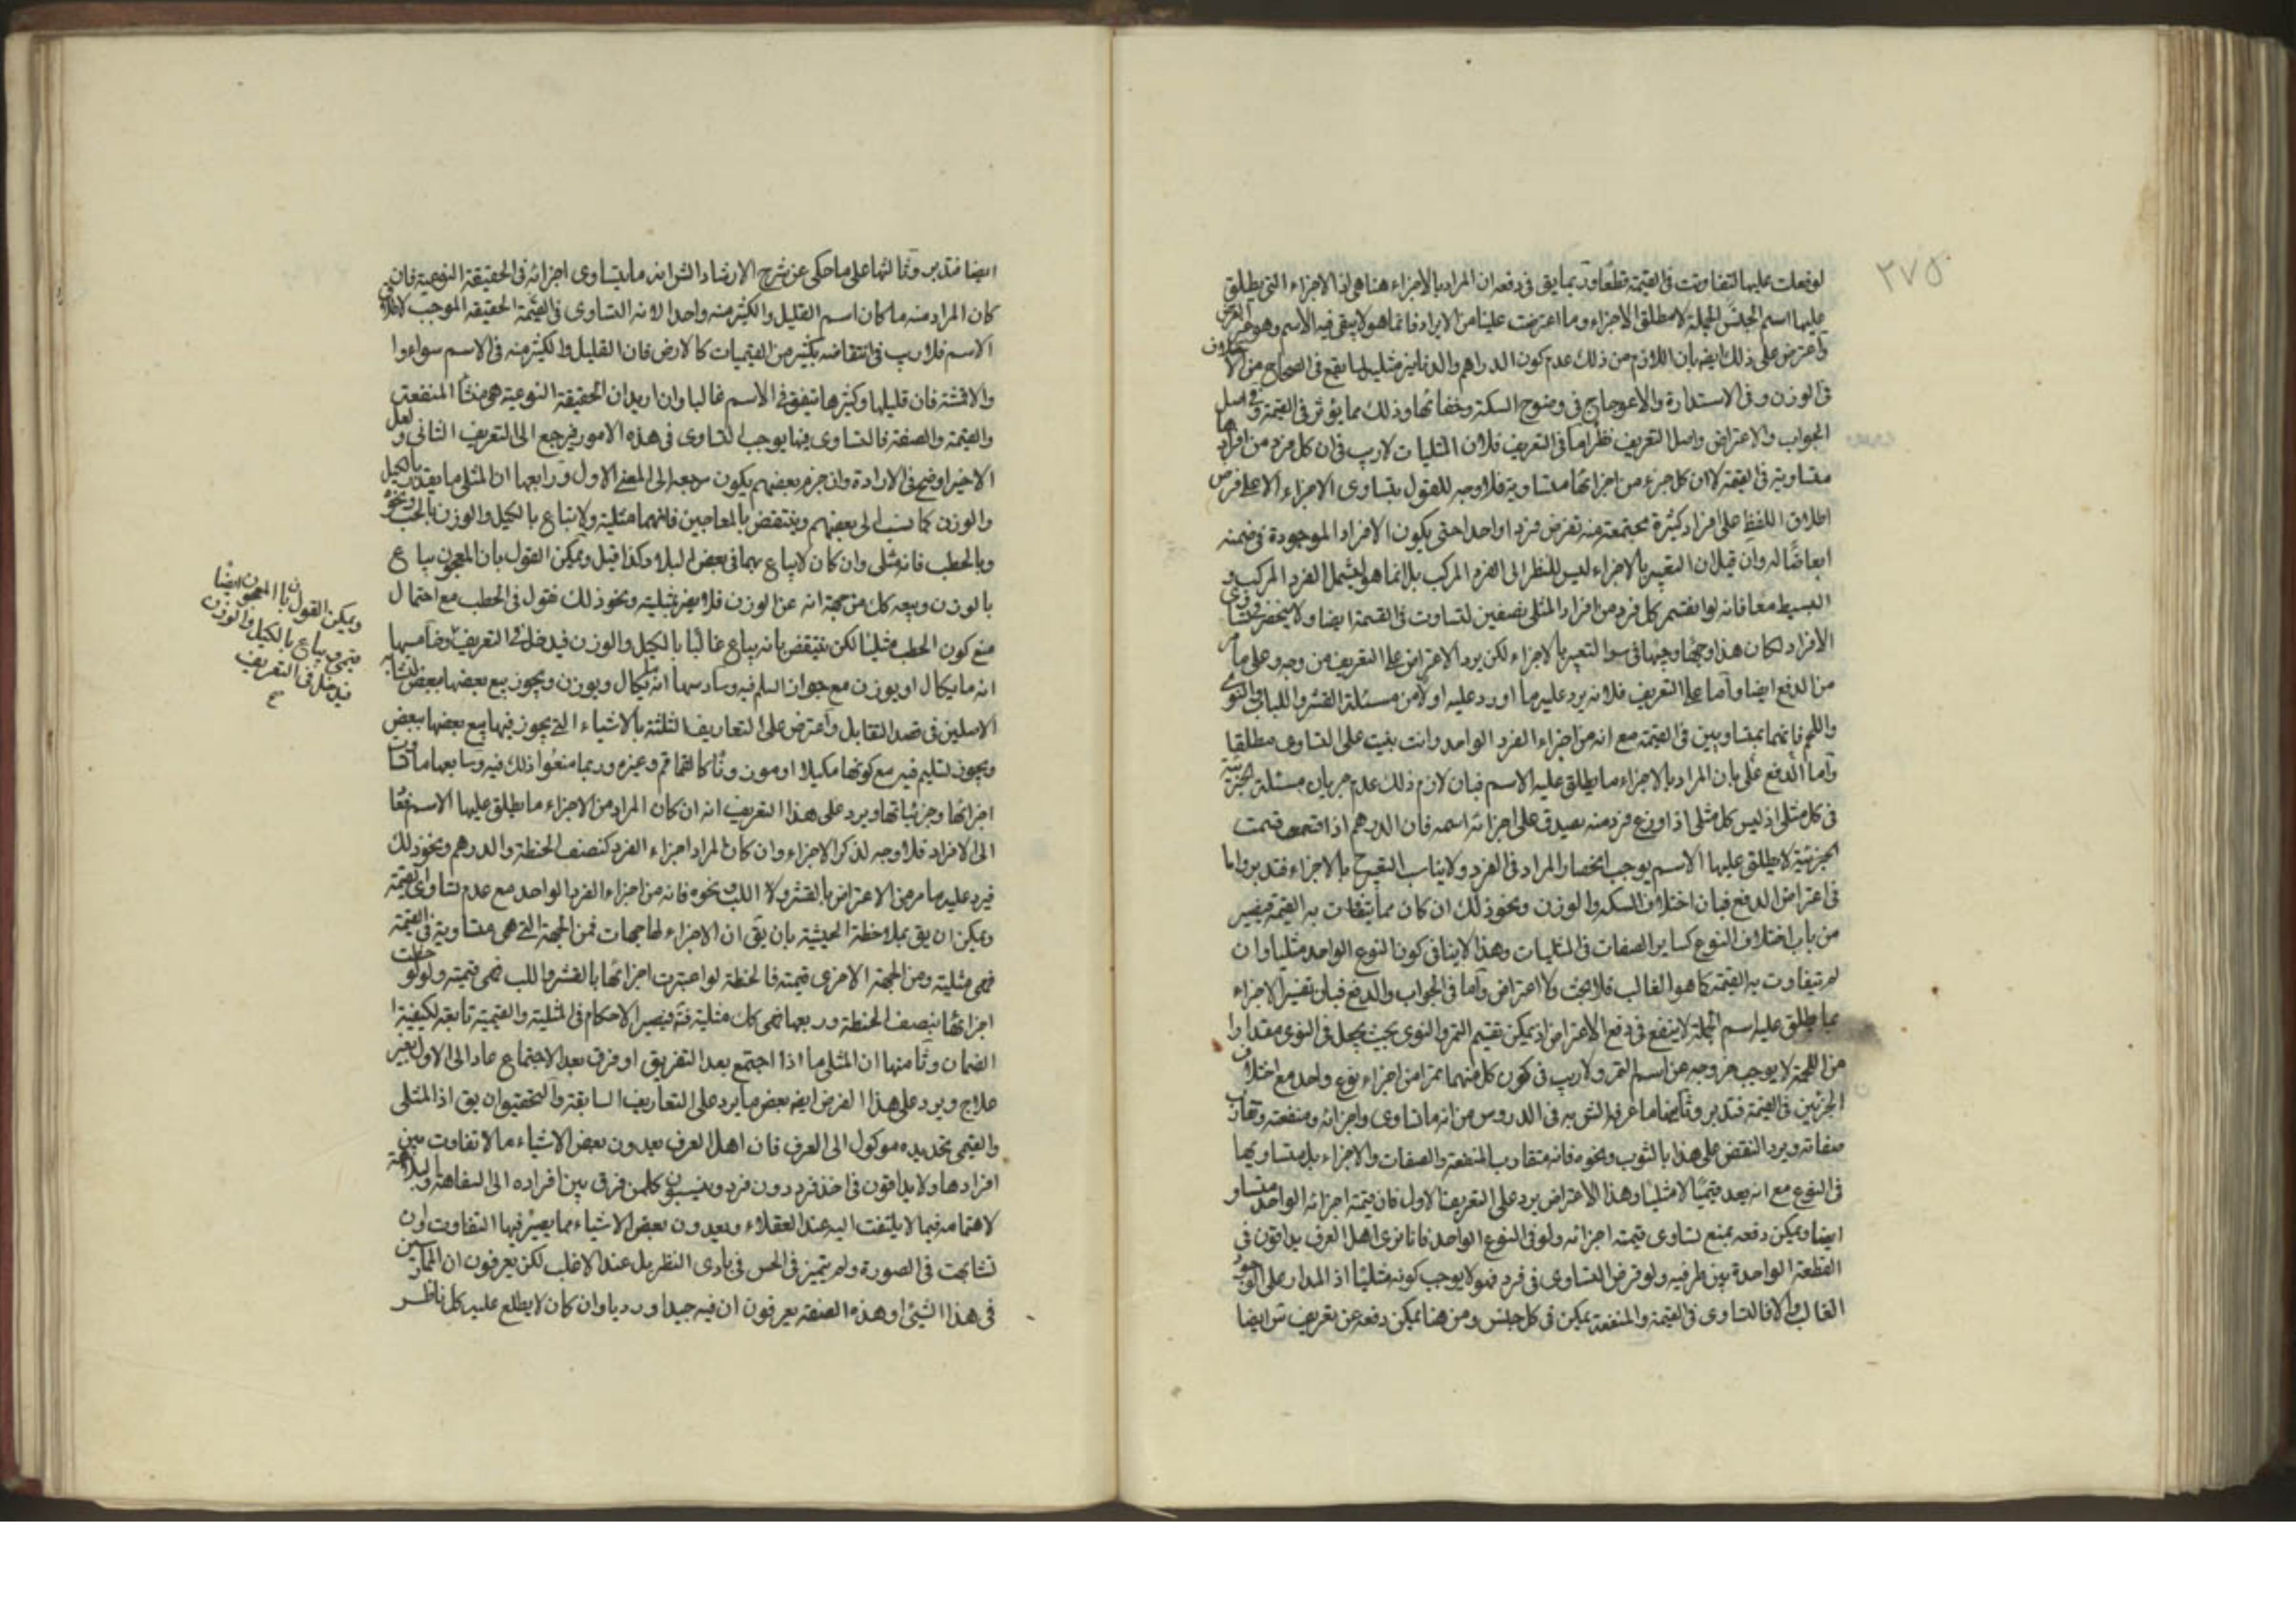 ٢٧٥
لوفعلت عليها لتفاوتت فى القيمة قطعا وقد بما يق فى دفعه ان المراد بالاجزاء هنا هى الاجزاء التى يطلق
عليها اسم الجنس الجملة لا مطلق الاجزاء وما اعترضت علينا من الايراد فانما هو لا يبقى فيه الاسم وهو
واعترض على ذلك ايضه بان اللازم من ذلك عدم كون الدراهم والدنانير مثليا لما يقع فى الصحاح من الاختلاف
فى الوزن وفى الاستدارة والاعوجاج فى وضوح السكة وخفائها وذلك مما يؤثر فى القيمة وفى اصل
الجواب والاعتراض واصل التعريف نظر اما فى التعريف فلان المثليات لا ريب فى ان كل فرد من افرادها
متساوية فى القيمة لا ان كل جزء من اجزائها متساوية فلا وجه للقول بتساوى الاجزاء الا على فرض
اطلاق اللفظ على افراد كثيرة مجتمعة منه تفرض فردا واحدا حتى يكون الافراد الموجودة فى ضمنه
ابعاضا له وان قيل ان التعبير بالاجزاء ليس للنظر الى الفرد المركب بل انما هو ليشمل الفرد المركب و
البسيط معا فانه لو انقسم كل فرد من افراد المثلى نصفين لتساوت فى القيمة ايضا ولا ينحصر
الافراد لكان هذا وجها وجيها فى سر التعبير بالاجزاء لكن يرد الاعتراض على التعريف من وجه وعلى ما مر
من الدفع ايضا واما على التعريف فلانه يرد عليه ما اورد عليه اولا من مسئلة القشر واللباب والنوى
واللحم فانهما بمتساويين فى القيمة مع انه من اجزاء الفرد الواحد وانت بنيت على التساوى مطلقا
واما الدفع على بان المراد بالاجزاء ما يطلق عليه الاسم فبان لازم ذلك عدم جريان مسئلة الجزئية
فى كل مثلى اذ ليس كل مثلى اذا وزع فرد منه يصدق على اجزائه اسمه فان الدرهم اذا قسمت قسمت
الجزئية لا يطلق عليها الاسم يوجب انحصار المراد فى الفرد ولا يناسب التصريح بالاجزاء فتدبر واما
فى اعتراض الدفع فبان اختلاف السكه والوزن ونحو ذلك ان كان مما يتفاوت به القيمة فيصير
من باب اختلاف النوع كساير الصفات فى المثليات وهذا لا ينافى كون النوع الواحد مثليا وان
لم يتفاوت به القيمة كما هو الغالب فلا بحث ولا اعتراض واما فى الجواب والدفع فبان تفسير الاجزاء
بما يطلق عليه اسم الجملة لا ينفع فى دفع الاعتراض اذ يمكن تقسيم التمر والنوى بحيث يجعل فى النوى مقدارا
من اللحمة لا يوجب خروجه عن اسم التمر ولا ريب فى كون كل منهما تمرا من اجزاء نوع واحد مع اختلاف
الجزئين فى القيمة فتدبر وثانيها ما عرفه الش به فى الدروس من انه ما تساوى اجزائه ومنفعته وتقارب
صفاته ويرد النقض على هذا بالثوب ونحوه فانه متقارب المنفعة والصفات والاجزاء بل متساويها
فى النوع مع انه يعد قيميا لا مثليا وهذا الاعتراض يرد على التعريف الاول فان قيمة اجزائه الواحد متساو
ايضا ويمكن دفعه بمنع تساوى قيمة اجزائه ولو فى النوع الواحد فانا نرى اهل العرف يداقون فى
القطعة الواحدة بين طرفيه ولو فرض التساوى فى فرد فهو لا يوجب كونه مثليا اذ المدار على
الغالب والا فالتساوى فى القيمة والمنفعة يمكن فى كل جنس ومن هنا يمكن دفعه عن تعريف ش ايضا
ايضا فتدبر وثالثها على ما حكى عن شرح الارشاد الش انه ما يتساوى اجزائه فى الحقيقة النوعية فان
كان المراد منه ما كان اسم القليل والكثير منه واحدا لانه التساوى فى القيمة الحقيقة الموجب لاطلاق
الاسم فلا ريب فى انتقاضه بكثير من القيميات كالارض فان القليل والكثير منه فى الاسم سواء وا
والاقمشة فان قليلها وكثيرها يتفق فى الاسم غالبا وان اريد ان الحقيقة النوعية هو منشأ المنفعة
والقيمة والصفة فالتساوى فيها يوجب التساوى فى هذه الامور فيرجع الى التعريف الثانى ولعل
الاخير اوضح فى الارادة وان جزم بعضهم بكون مرجعه الى المعنى الاول ورابعها ان المثلى ما يقدر بالكيل
والوزن كما نسب الى بعضهم وينتقض بالمعاجين فانهما مثلية ولا تباع بالكيل والوزن بالحب ونحوه
وبالحطب فانه مثلى وان كان لا يباع بهما فى بعض البلاد وكذا قيل ويمكن القول بان المعجون يباع
بالوزن وبيعه كك من جهة انه عن الوزن فلا يضر بمثليته ونحو ذلك نقول فى الحطب مع احتمال
منع كون الحطب مثليا لكن ينتقض بانه يباع غالبا بالكيل والوزن فيدخل فى التعريف وخامسها
انه ما يكال او يوزن مع جواز السلم فيه وسادسها انه يكال ويوزن ويجوز بيع بعضها ببعض لتشابه
الاصلين فى قصد التقابل واعترض على التعاريف الثلثة بالاشياء التى يجوز فيها بيع بعضها ببعض
ويجوز تسليم فيه مع كونها مكيلا او موزونا كالقماقم وغيره وربما منعوا ذلك فيه وسابعها ما تساوت
اجزائها وجزئياتها ويرد على هذا التعريف انه ان كان المراد من الاجزاء ما يطلق عليها الاسم
الى الافراد فلا وجه لذكر الاجزاء وان كان المراد اجزاء الفرد كنصف الحنطة والدرهم ونحو ذلك
فيرد عليه ما مر من الاعتراض بالقشر والا اللب ونحوه فانه من اجزاء الفرد الواحد مع عدم تساوى القيمة
ويمكن ان يق بملاحظة الحيثية بان يق ان الاجزاء لها جهات فمن الجهة التى هى متساوية فى القيمة
فهى مثلية ومن الجهة الاخرى قيمته فالحنطة لو اعتبرت اجزائها بالقشر واللب فهى قيمته ولو لوحظت
اجزائها بنصف الحنطة وربعها فهى كك مثلية فتصير الاحكام فى المثلية والقيمية تابعة لكيفية
الضمان وثامنها ان المثلى ما اذا اجتمع بعد التفريق او فرق بعد الاجتماع عاد الى الاول بغير
علاج ويرد على هذا الفرض ايضه بعض ما يرد على التعاريف السابقة والتحقيق ان يق اذ المثلى
والقيمى تحديده موكول الى العرف فان اهل العرف يعدون بعض الاشياء ما لا تفاوت بين
افرادها ولا يداقون فى اخذ فرد دون فرد وينسبون كل من فرق بين افراده الى السفاهة والبلاهة
لاهتمامه فيما لا يلتفت اليه عند العقلاء ويعدون بعض الاشياء مما يصير فيها التفاوت وان
تشابهت فى الصورة ولم يتميز فى الحس فى بادى النظر بل عند الاغلب لكن يعرفون ان الممارسين
فى هذا الشئ او هذه الصنعة يعرفون ان فيه جيدا ورديا وان كان لا يطلع عليه كل ناظر
ويمكن القول بان المعجون ايضا
قيمى يباع بالكيل والوزن
فيدخل فى التعريف